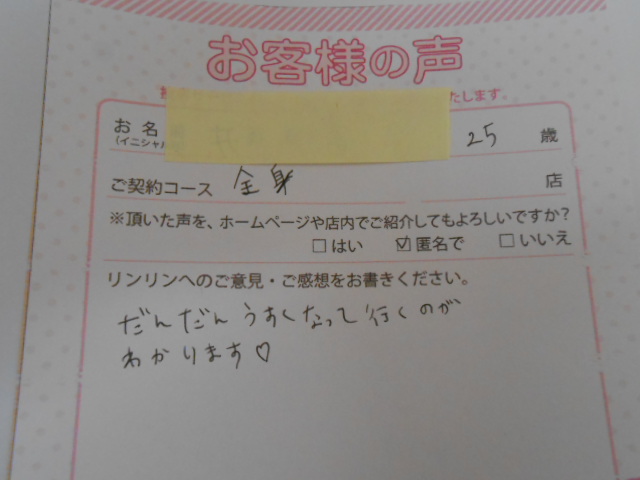 お客様の声
たします。
お名
(イニシャル
25 歳
ご契約コース 全身 店
※頂いた声を、ホームページや店内でご紹介してもよろしいですか?
□はい ☑匿名で □いいえ
リンリンへのご意見・ご感想をお書きください。
だんだんうすくなって行くのが
わかります♡